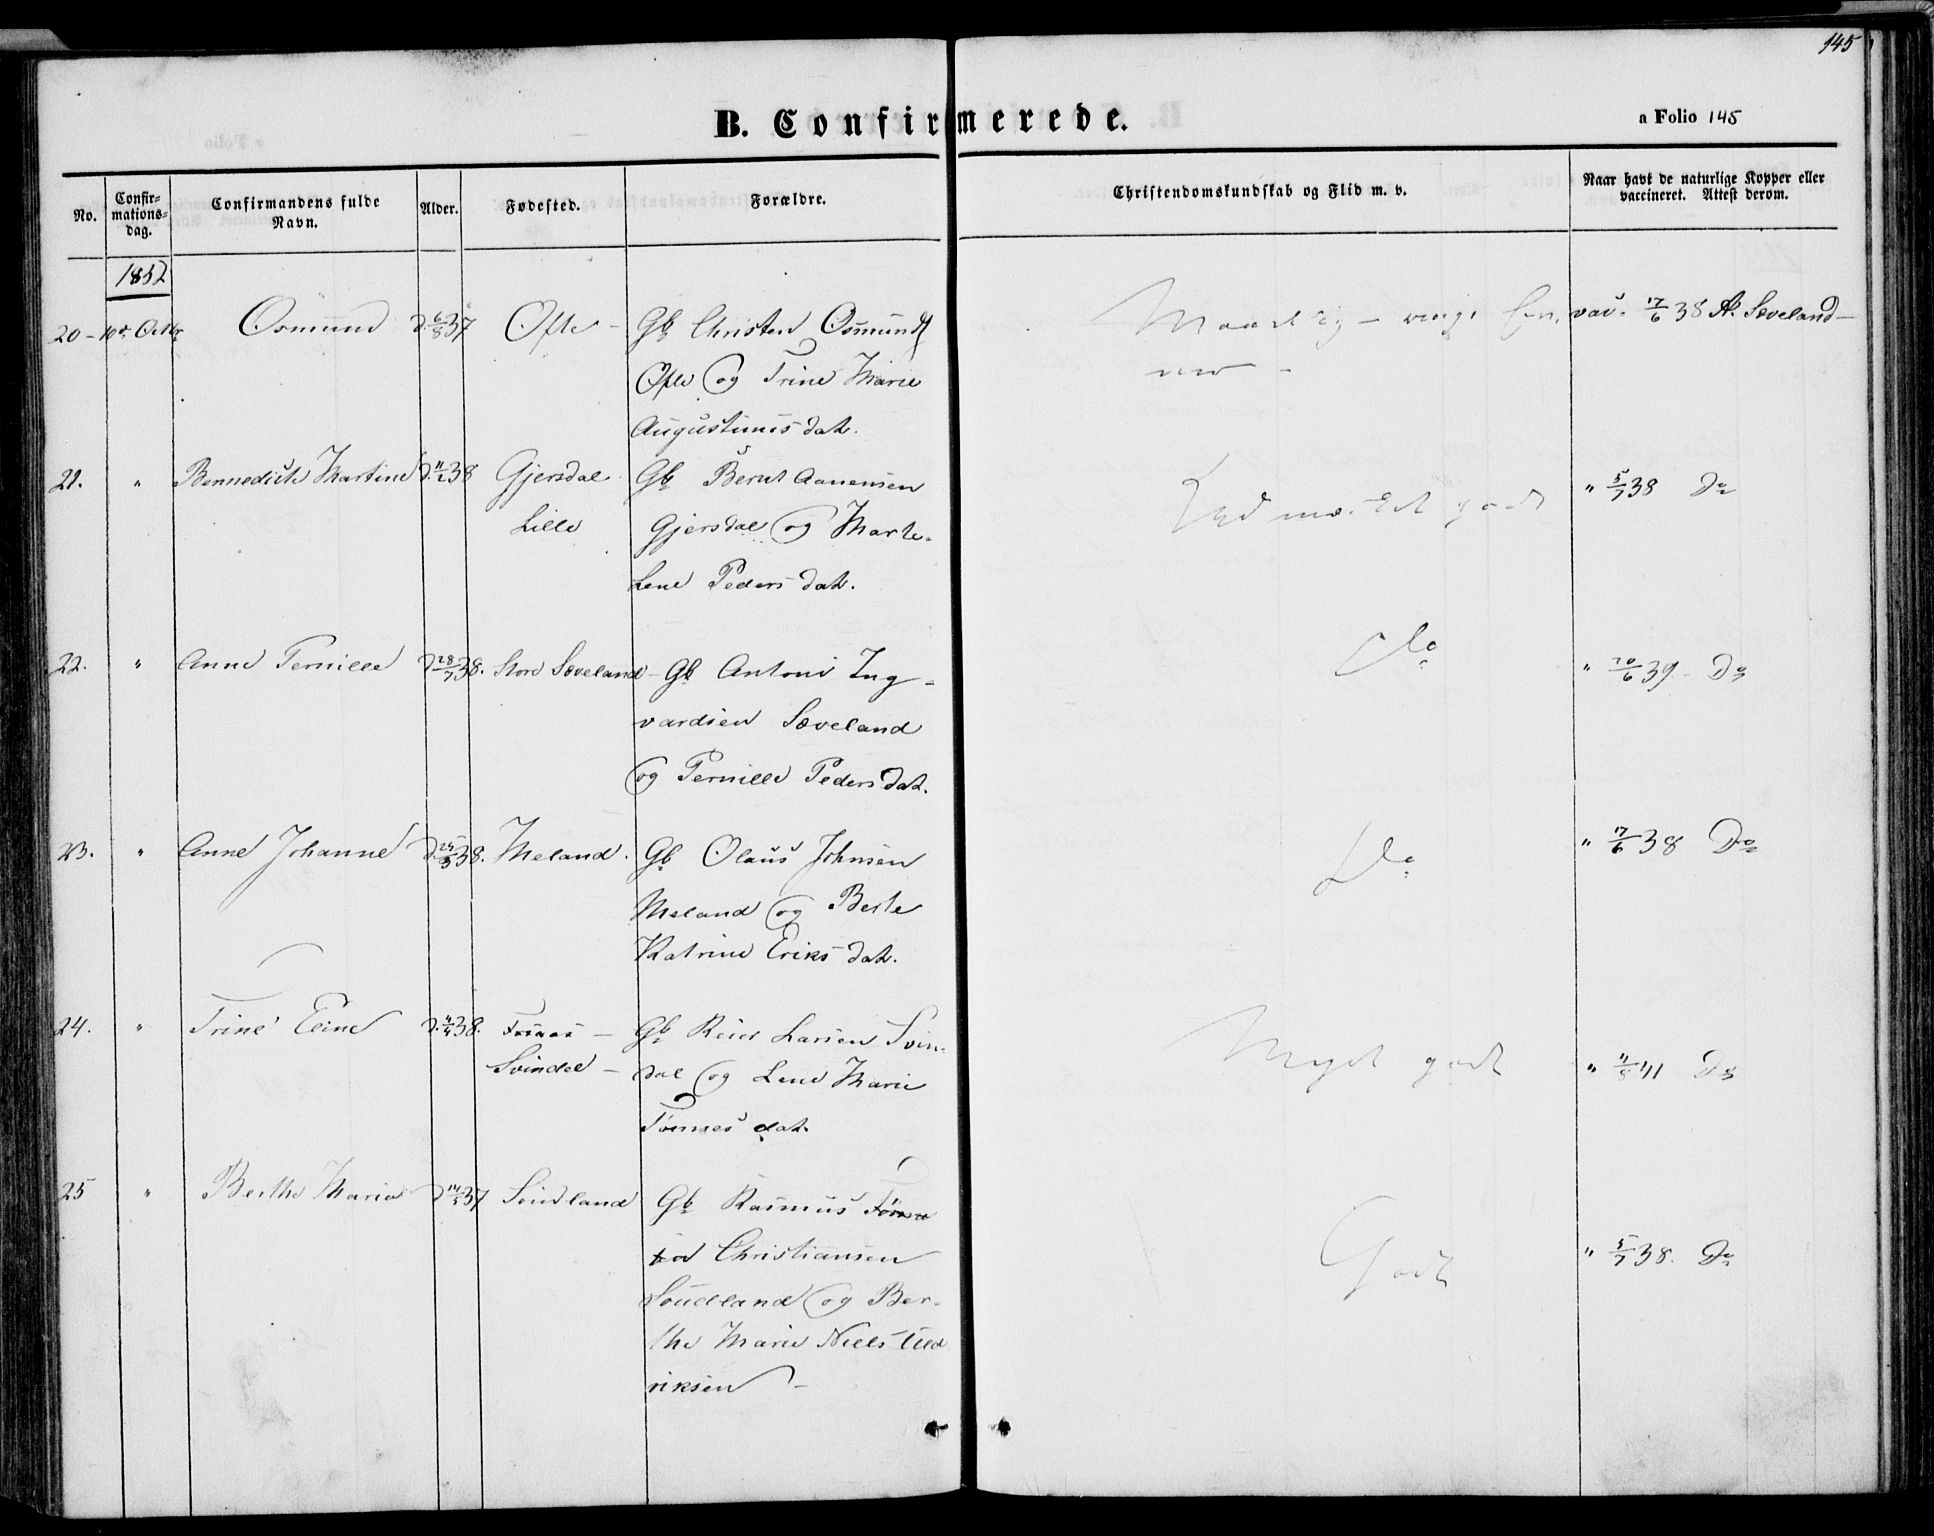 145
B. Confirmerede.
a Folio 145
No.
Confir-
mations-
dag.
Confirmandens fulde
Navn.
Alder.
Fødested.
Forældre.
Christendomskundskab og Flid m. v.
Naar havt de naturlige Kopper eller
vaccineret. Attest derom.
1852
20 - 10de Octbr Osmund d. 6/8 37 Ofte - Gb Christen Osmunds
Ofte og Trine Marie
Augustinusdat.
vac. 17/6 38 A. Sæveland -
21. " Bennedicte Martine d. 11/2 38 Gjersdal Gb Bernt Aanensen
Lille Gjersdal og Marte
Lene Pedersdat.
godt
" 5/7 38 Do
22. " Anne Pernille d 28/7 38. Store Sæveland - Gb Antoni Ing-
vardsen Sæveland
og Pernille Pedersdat.
Do
" 20/6 39 - Do
23. " Anne Johanne d 24/3 38. Meland. Gb Olaus Johnsen
Meland og Berte
Katrine Eriksdat.
Do
" 17/6 38 Do
24. " Trine Eline d. 4/4 38. Svindal - Gb Reier Larsen Svin-
dal og Lene Marie
Tønnesdat.
Meget godt
" 11/8 41 Do
25 " Berthe Maria d 14/5 37 Soudland Gb Rasmus
Christiansen
Soudland og Ber-
the Marie Niels Uld
riksen -
Godt
" 5/7 38. Do